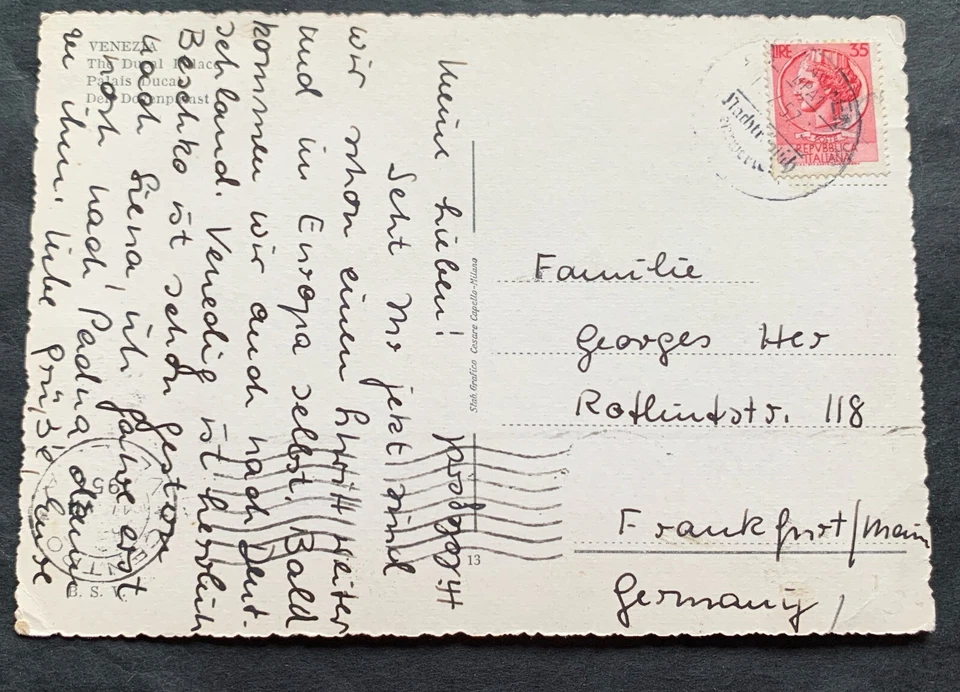 VENEZIA
The Ducal Palace
Palais Ducal
Der Dogenpalast
Meine Lieben! Grüßgott
Seht Ihr jetzt sind
wir schon einen Schritt weiter
und in Europa selbst. Bald
kommen wir auch nach Deut-
schland. Venedig ist herrlich
Beschko ist schon gestern
nach Siena, ich fahre erst
noch nach Padua dann
zu ihm. Liebe Grüße Eure
Stab. Grafico Cesare Capello-Milano
13
B. S. V.
LIRE 35
POSTE
REPVBBLICA
ITALIANA
57
Familie
Georges Her
Rotlintstr. 118
Frankfurt/Main
Germany